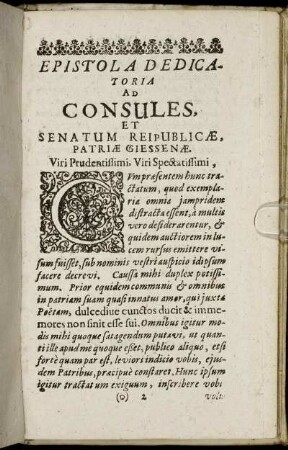 EPISTOLA DEDICA-
TORIA
AD
CONSULES,
ET
SENATUM REIPUBLICÆ,
PATRIÆ GIESSENÆ.
Viri Prudentissimi, Viri Spectatissimi,
CUm præsentem hunc tra-
ctatum, quod exempla-
ria omnia jampridem
distracta essent, à multis
vero desiderarentur, &
quidem auctiorem in lu-
cem rursus emittere vi-
sum fuisset, sub nominis vestri auspicio id ipsum
facere decrevi. Caussa mihi duplex potissi-
mum. Prior equidem communis & omnibus
in patriam suam quasi innatus amor, qui juxta
Poëtam, dulcedine cunctos ducit & imme-
mores non sinit esse sui. Omnibus igitur mo-
dis mihi quoque satagendum putavi, ut quan-
ti ille apud me quoque esset, publico aliquo, etsi
fortè quam par est, leviori indicio vobis, ejus-
dem Patribus, præcipuè constaret. Hunc ipsum
igitur tractatum exiguum, inscribere vobi
(o) 2 volu-